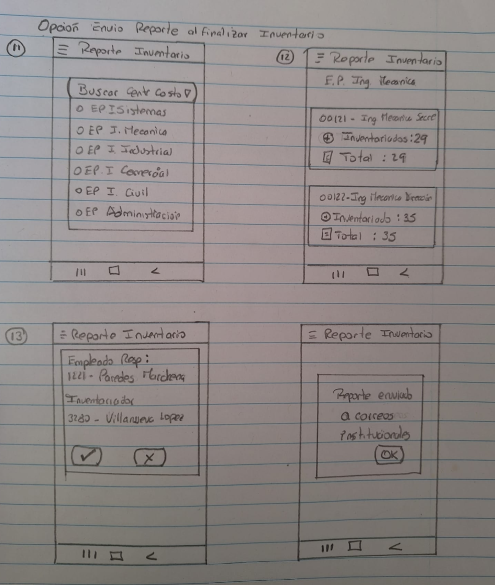 Opción Envio Reporte al finalizar Inventario
11
≡ Reporte Inventario
Buscar Centr Costo ∇
O EP ISistemas
O EP I. Mecanica
O EP I. Industrial
O EP. I Comercial
O EP I Civil
O EP Administracion
12
≡ Reporte Inventario
E.P. Ing Mecanica
00121 - Ing Mecanica Secre
Inventariados: 29
Total : 29
00122 - Ing Mecanica
Inventariado : 35
Total : 35
13
≡ Reporte Inventario
Empleado Resp:
1221 - Paredes Marchena
Inventariador
3280 - Villanueva Lopez
✓ x
≡ Reporte Inventario
Reporte enviado
a correos
institucionales
OK